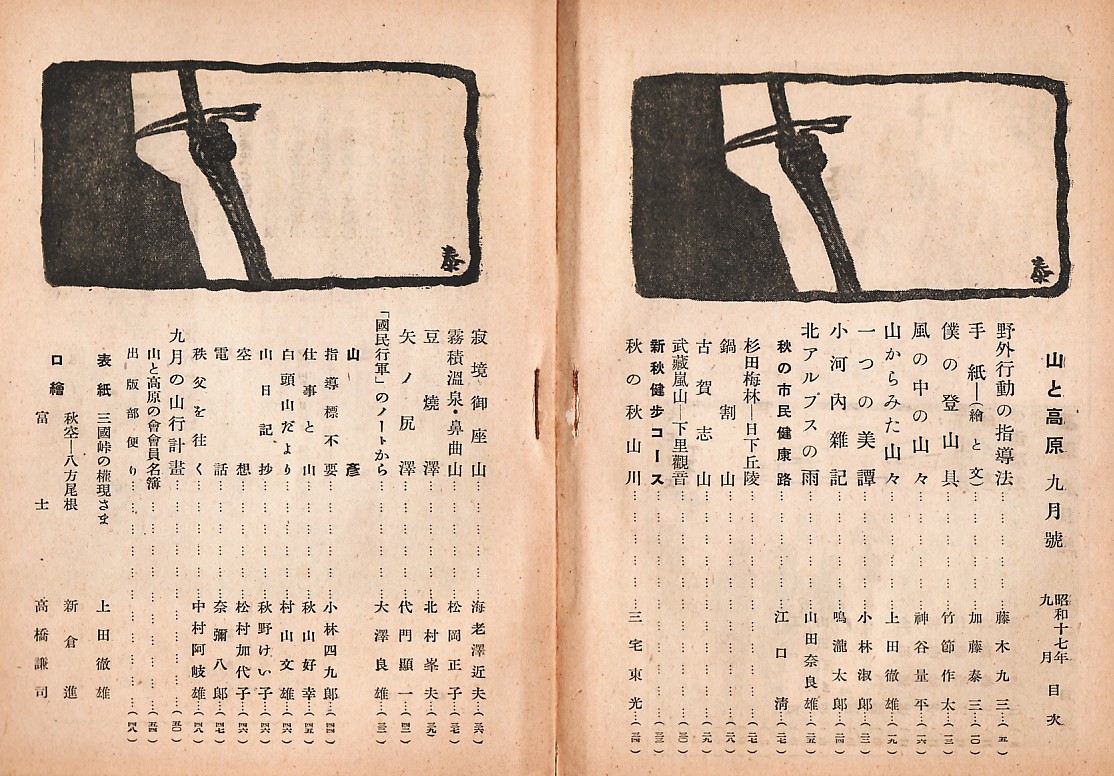 泰
山と高原 九月號 昭和十七年九月 目次
野外行動の指導法……藤木九三…(五)
手紙―(繪と文)……加藤泰三…(一〇)
僕の登山具……竹節作太…(一三)
風の中の山々……神谷量平…(一六)
山からみた山々……上田徹雄…(一九)
一つの美譚……小林淑郎…(二二)
小河内雜記……鳴瀧太郎…(二四)
北アルプスの雨……山田奈良雄…(二五)
秋の市民健康路……江口清…(二七)
杉田梅林―日下丘陵……(二七)
鍋割山……(二八)
古賀志山……(二九)
武藏嵐山―下里觀音……(三〇)
新秋健歩コース……(三三)
秋の秋山川……三宅東光…(三四)
泰
寂境御座山……海老澤近夫…(三六)
霧積溫泉・鼻曲山……松岡正子…(三七)
豆燒澤……北村峯夫…(三九)
矢ノ尻澤……代門顯一…(四二)
「國民行軍」のノートから……大澤良雄…(三二)
山彥
指導標不要……小林四九郎…(四四)
仕事と山……秋山好幸…(四五)
白頭山だより……村山文雄…(四六)
山日記抄……秋野けい子…(四六)
空想……松村加代子…(四六)
電話……奈彌八郎…(四七)
秩父を往く……中村阿岐雄…(四八)
九月の山行計畫……(五〇)
山と高原の會會員名簿……(五四)
出版部便り……(四八)
表紙 三國峠の權現さま 上田徹雄
口繪 秋空―八方尾根 新倉進
富士 高橋謙司